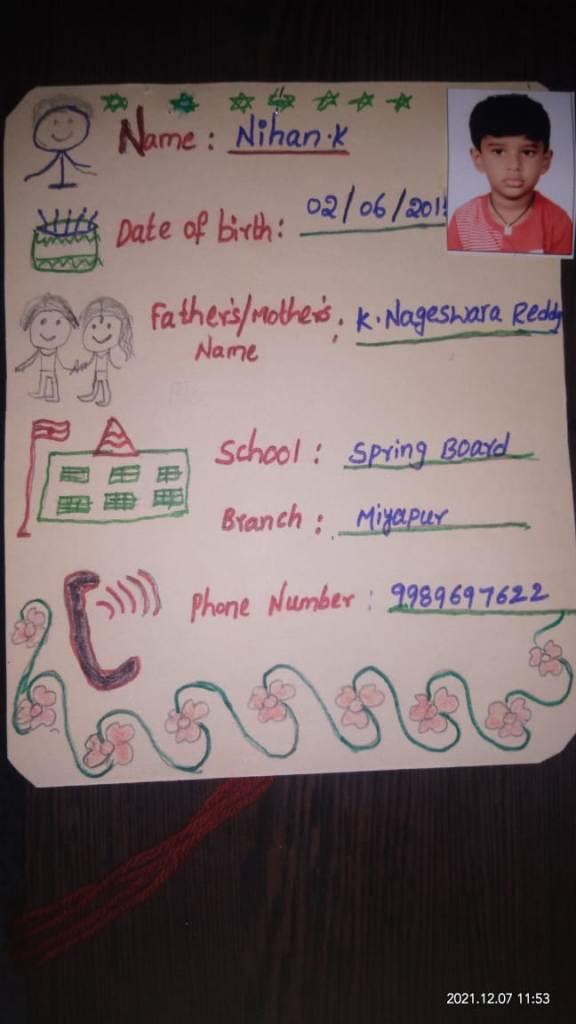 Name: Nihan.K
Date of birth: 02/06/201
Father's/Mother's Name : K. Nageswara Reddy
School: Spring Board
Branch: Miyapur
Phone Number: 9989697622
2021.12.07 11:53